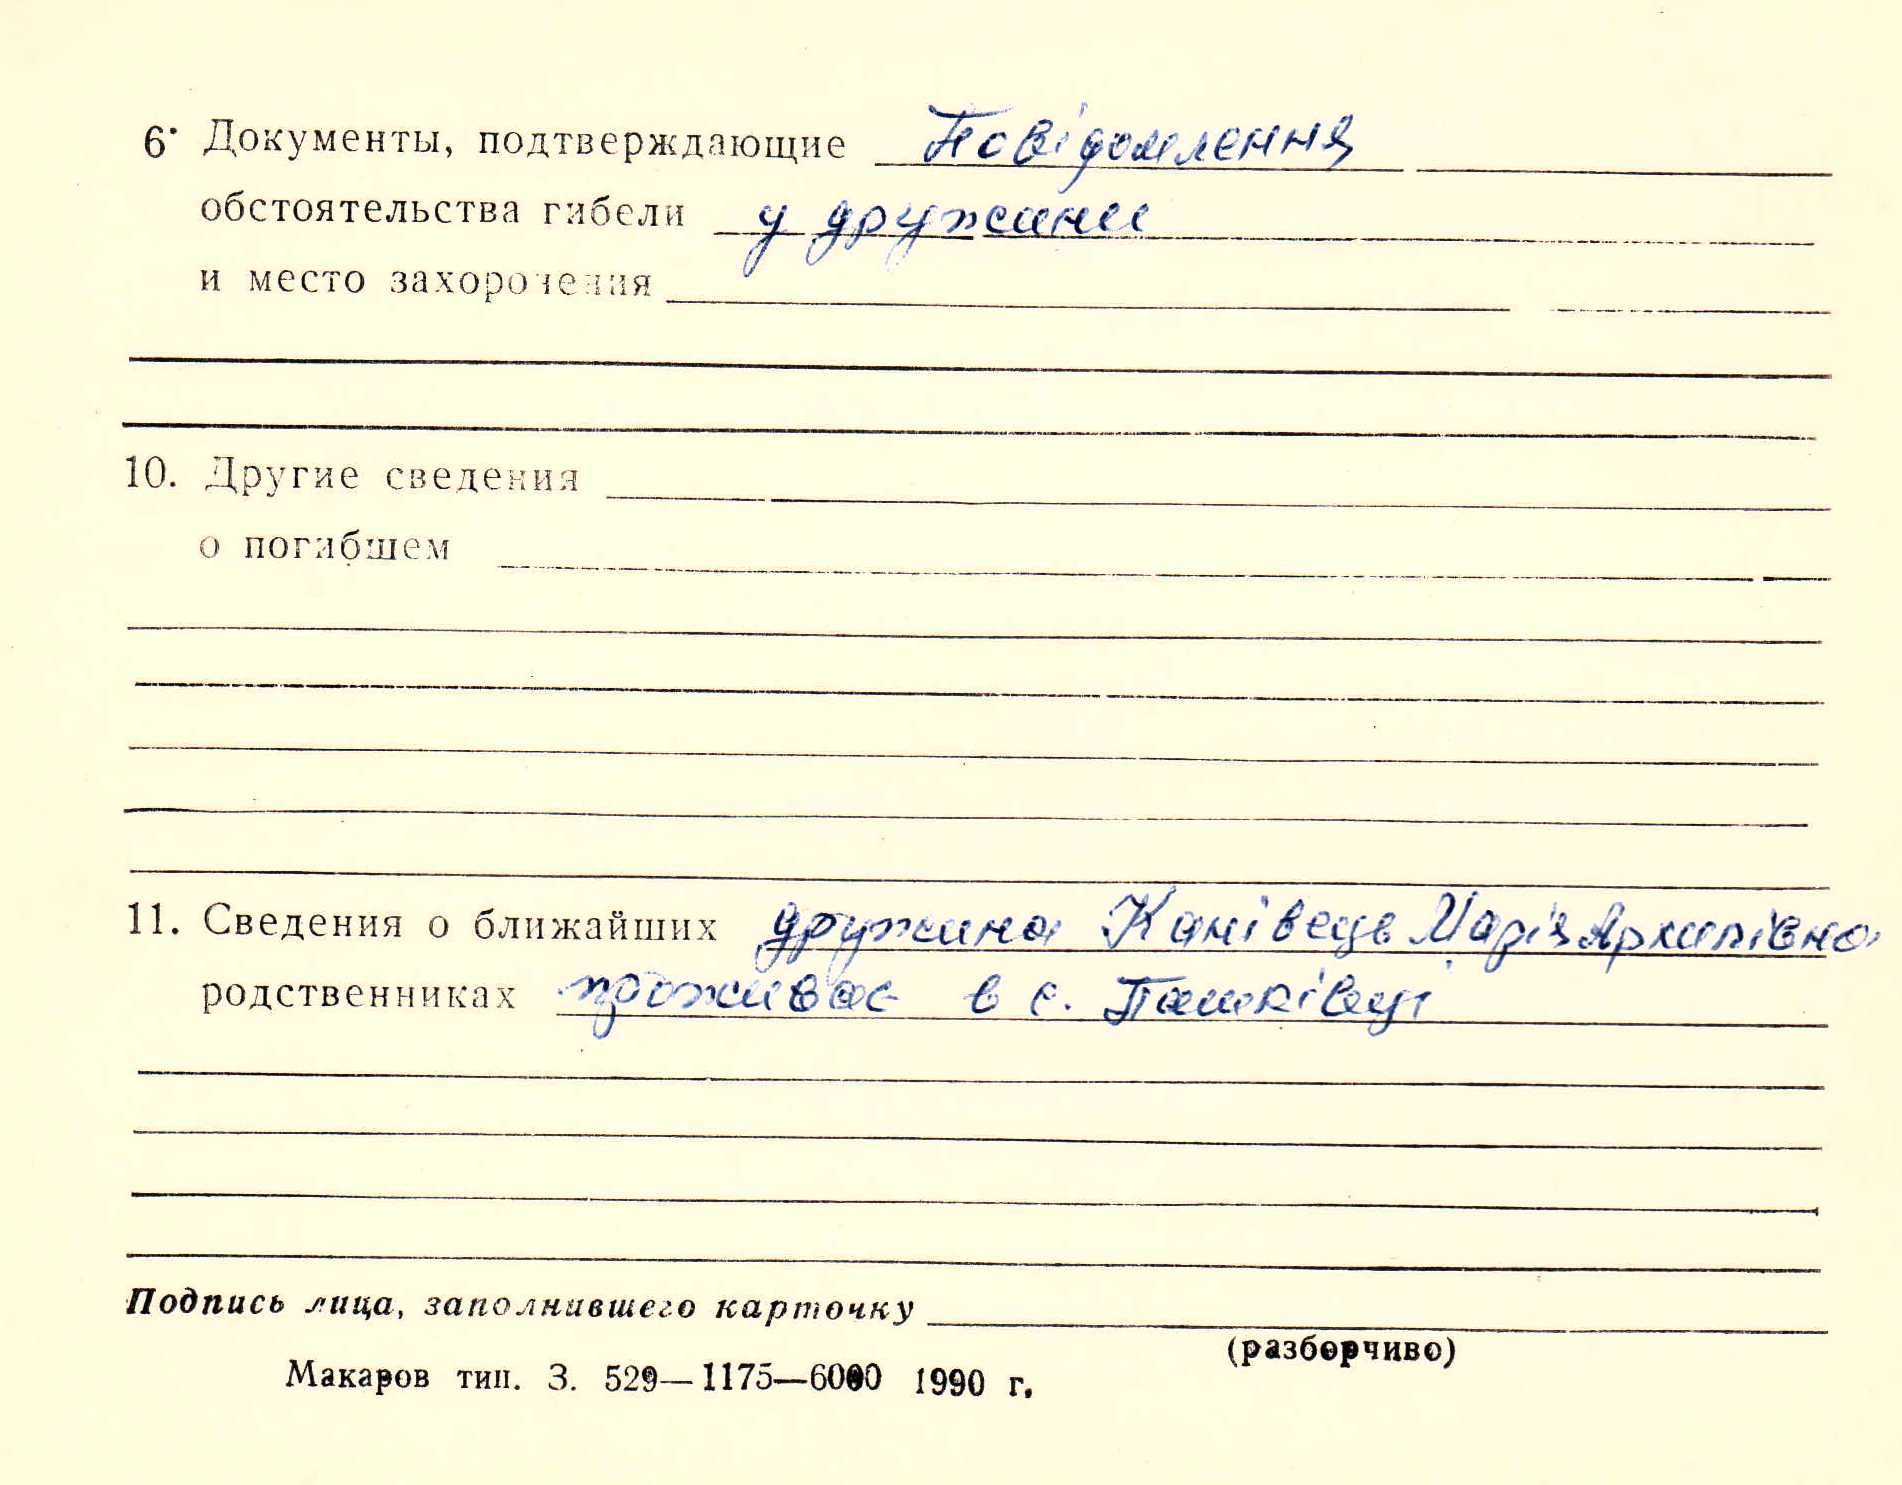 6. Документы, подтверждающие Повідомлення
обстоятельства гибели у дружини
и место захоронения
10. Другие сведения
о погибшем
11. Сведения о ближайших дружина Канівець Марія Архипівна
родственниках проживає в с. Пашківці
Подпись лица, заполнившего карточку
(разборчиво)
Макаров тип. З. 529—1175—6000 1990 г.